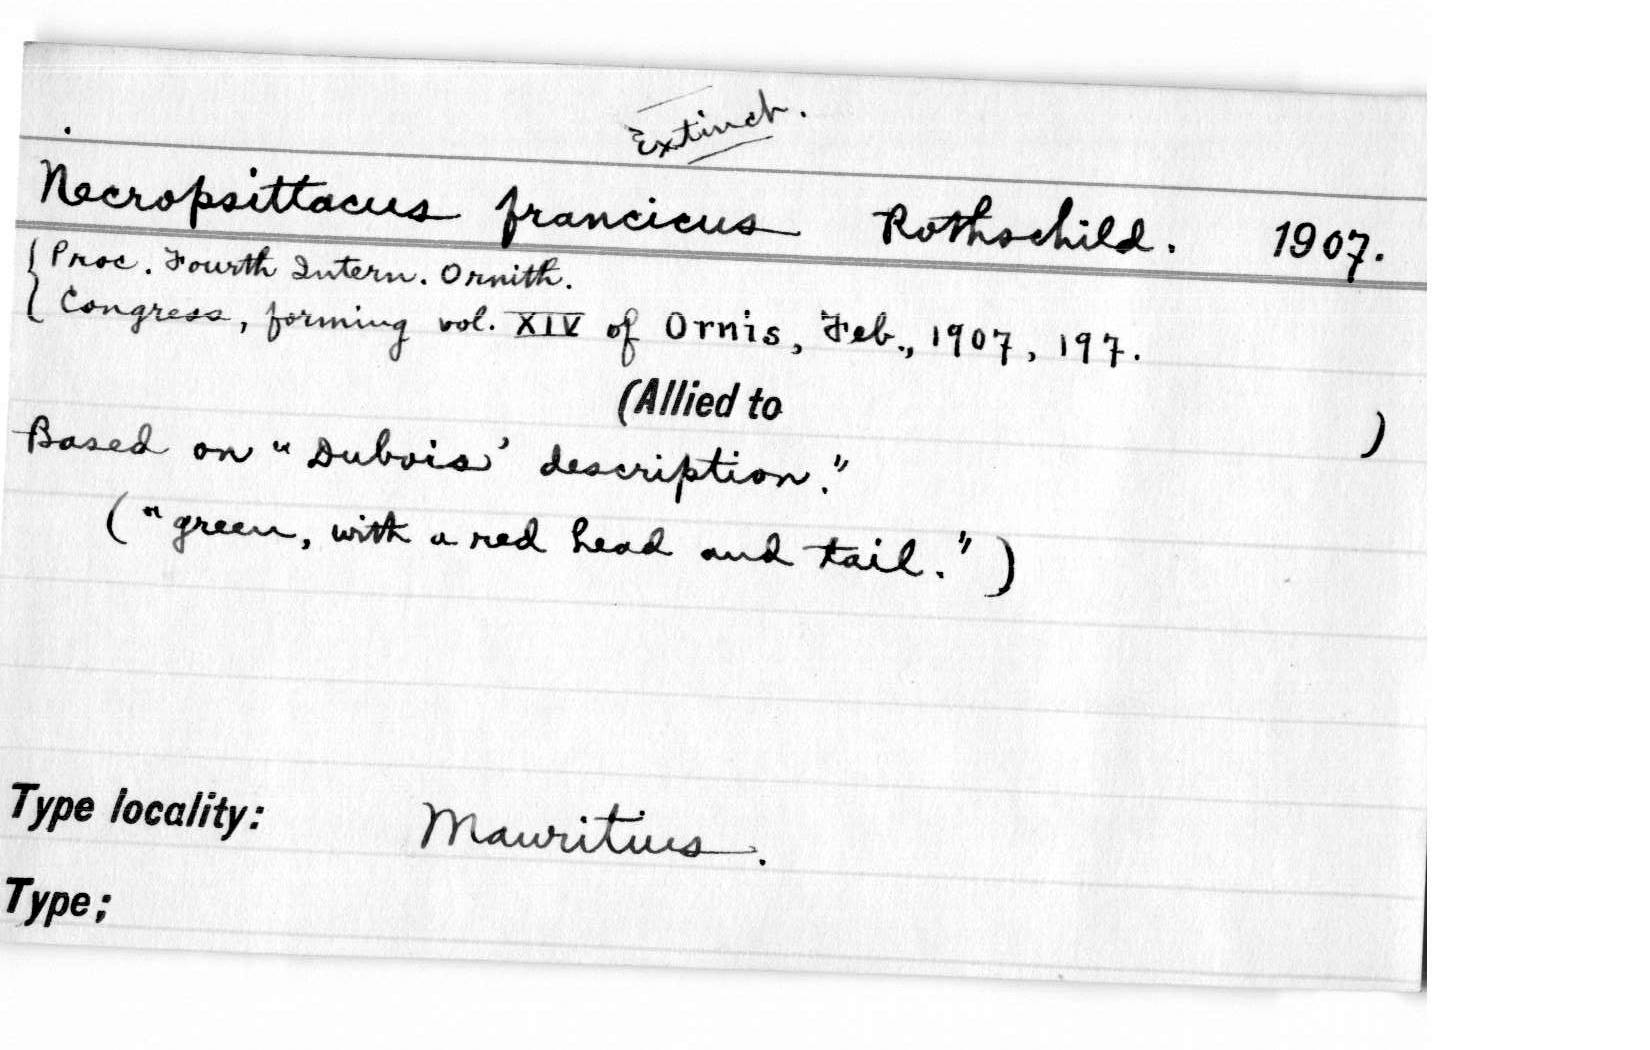 Extinct.
Necropsittacus francicus Rothschild. 1907.
{ Proc. Fourth Intern. Ornith.
{ Congress, forming vol. XIV of Ornis, Feb., 1907, 197.
(Allied to )
Based on "Dubois' description."
("green, with a red head and tail.")
Type locality: Mauritius.
Type;